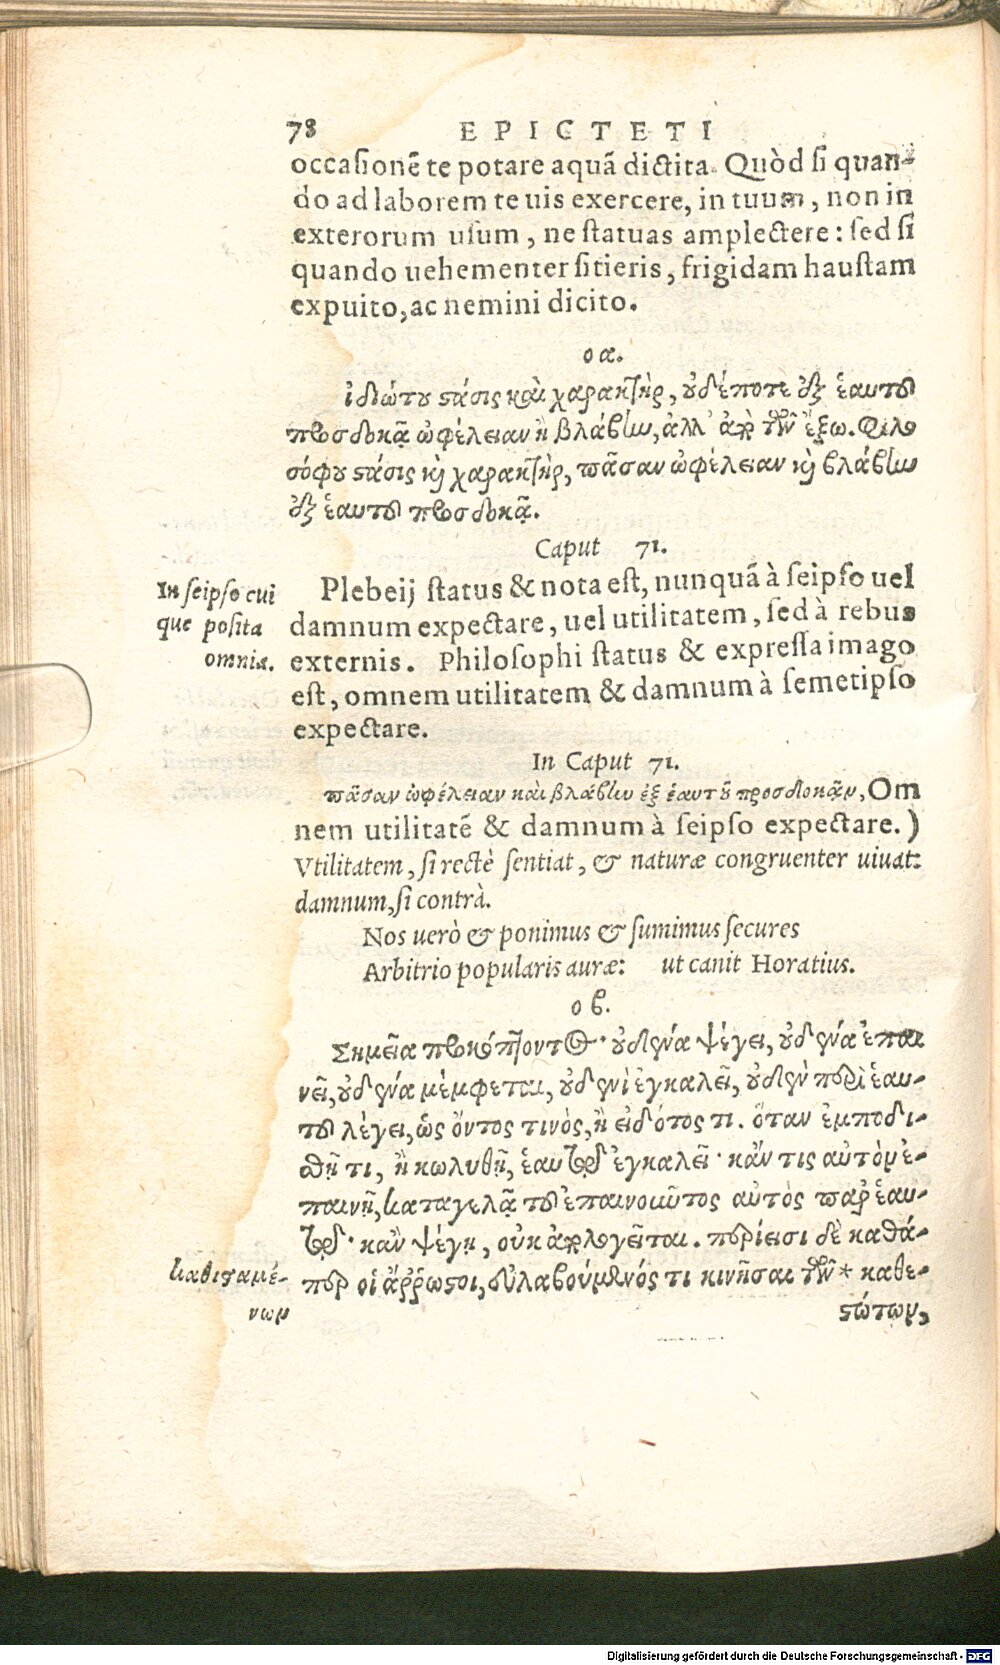 78 EPICTETI
occasionē te potare aquā dictita. Quòd si quan-
do ad laborem te uis exercere, in tuum, non in
exterorum usum, ne statuas amplectere: sed si
quando uehementer sitieris, frigidam haustam
expuito, ac nemini dicito.
οα.
ἰδιώτου στάσις καὶ χαρακτὴρ, οὐδέποτε ἐξ ἑαυτοῦ
προσδοκᾷ ὠφέλειαν ἢ βλάβην, ἀλλ' ἀπὸ τῶν ἔξω. Φιλο
σόφου στάσις καὶ χαρακτὴρ, πᾶσαν ὠφέλειαν καὶ βλάβην
ἐξ ἑαυτοῦ προσδοκᾷ.
Caput 71.
In seipso cui
que posita
omnia.
Plebeij status & nota est, nunquā à seipso uel
damnum expectare, uel utilitatem, sed à rebus
externis. Philosophi status & expressa imago
est, omnem utilitatem & damnum à semetipso
expectare.
In Caput 71.
πᾶσαν ὠφέλειαν καὶ βλάβην ἐξ ἑαυτοῦ προσδοκᾷν, Om
nem utilitatē & damnum à seipso expectare. )
Vtilitatem, si rectè sentiat, & naturæ congruenter uiuat:
damnum, si contrà.
Nos uerò & ponimus & sumimus secures
Arbitrio popularis auræ: ut canit Horatius.
οβ.
Σημεῖα προκόπτοντος· οὐδένα ψέγει, οὐδένα ἐπαι
νεῖ, οὐδένα μέμφεται, οὐδενὶ ἐγκαλεῖ, οὐδὲν περὶ ἑαυ-
τοῦ λέγει, ὡς ὄντος τινὸς, ἢ εἰδότος τι. ὅταν ἐμποδι-
σθῇ τι, ἢ κωλυθῇ, ἑαυτῷ ἐγκαλεῖ· κἄν τις αὐτὸν ἐ-
παινῇ, καταγελᾷ τοῦ ἐπαινοῦντος αὐτὸς παρ' ἑαυ-
τῷ· κἂν ψέγῃ, οὐκ ἀπολογεῖται. περίεισι δὲ καθά-
περ οἱ ἄρρωστοι, εὐλαβούμενός τι κινῆσαι τῶν * καθε-
καθισαμέ-
νων
στώτων,